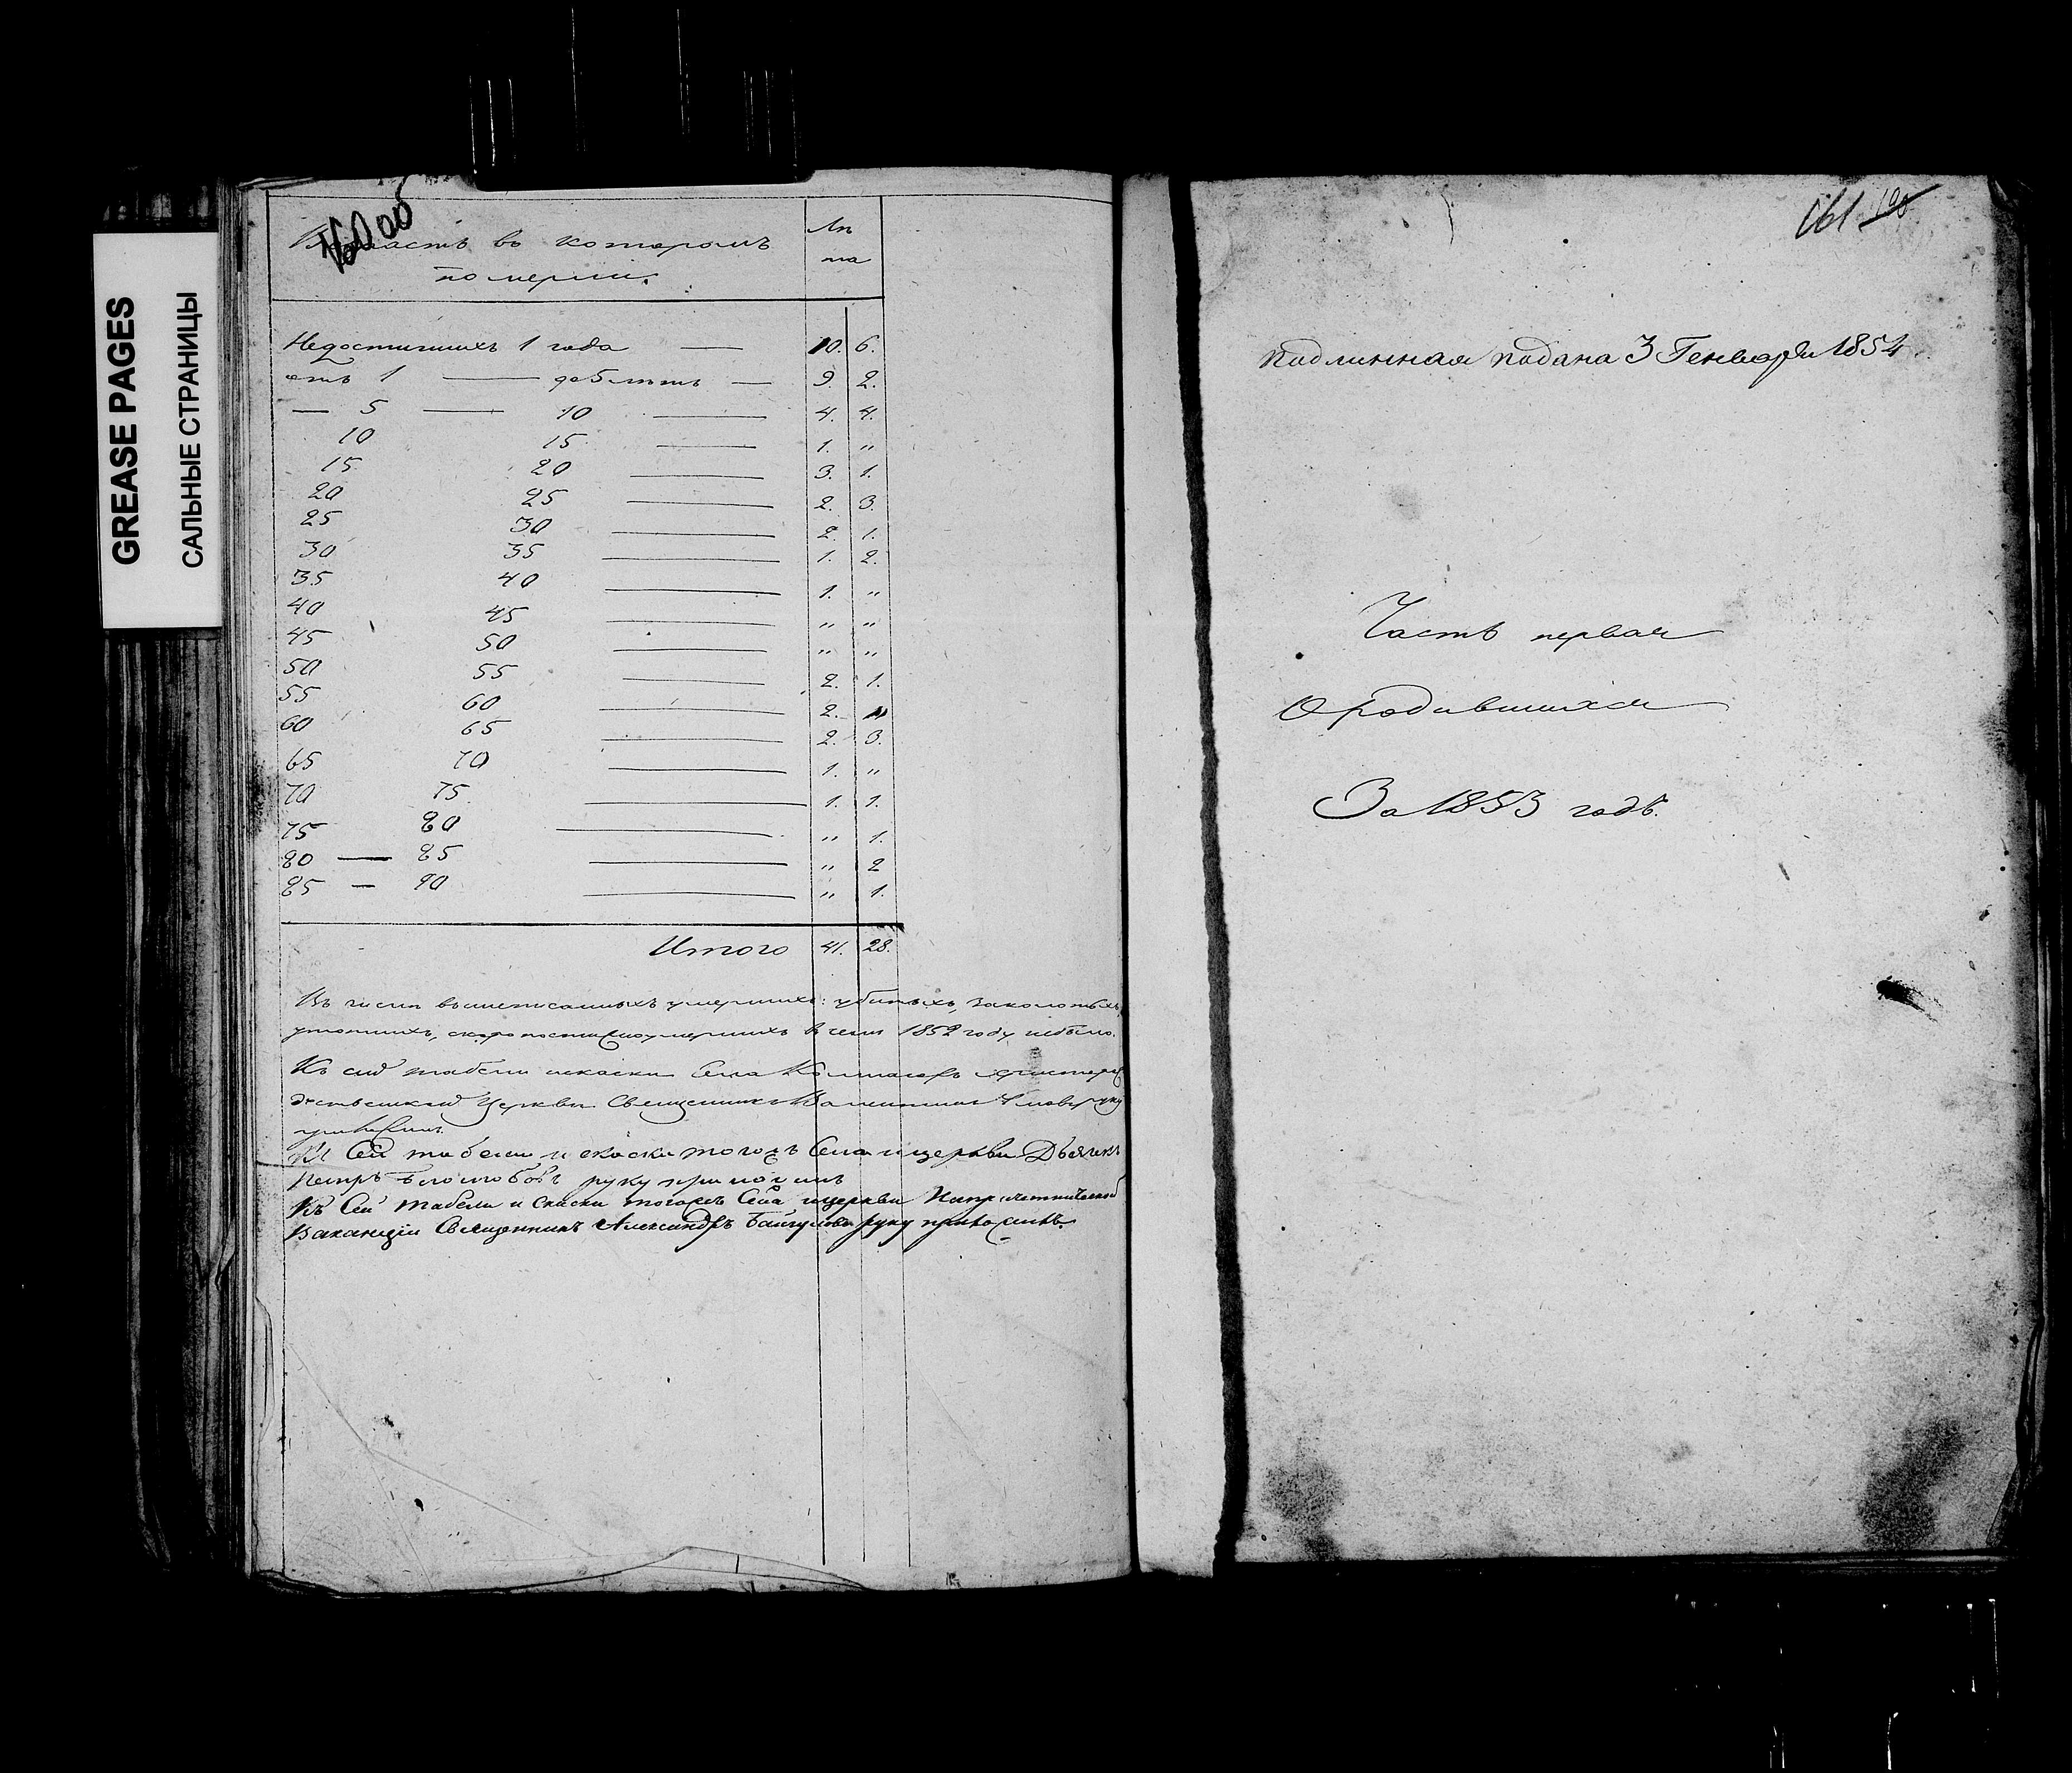 GREASE PAGES
САЛЬНЫЕ СТРАНИЦЫ
160 об
Возрастъ въ которомъ Лѣ
померли. та
Недостигшихъ 1 года — 10. 6.
отъ 1 — до 5 лѣтъ — 9. 2.
— 5 — 10 — 4. 4.
10 15 — 1. „
15 20 — 3. 1.
20 25 — 2. 3.
25 30 — 2. 1.
30 35 — 1. 2.
35 40 — 1. „
40 45 — „ „
45 50 — „ „
50 55 — 2. 1.
55 60 — 2. „
60 65 — 2. 3.
65 70 — 1. „
70 75 — 1. 1.
75 80 — „ 1.
80 — 85 — „ 2
85 — 90 — „ 1.
Итого 41. 28.
Въ числѣ вышеписанныхъ умершихъ: убитыхъ, заколотыхъ,
утопшихъ, скоропостижноумершихъ въ семъ 1852 году небыло.
Къ сей табели и скаски Села
Церкви Священникъ руку
приложилъ.
Къ Сей табели и скаски тогожъ Села и церкви Дьячекъ
Петръ руку приложилъ
Къ Сей табели и Скаски тогожъ Села и церкви На
Вакансіи Священникъ Александръ руку приложилъ.
161 190
подлинная подана 3 Генваря 1854
Часть первая
О родившихся
За 1853 годъ.